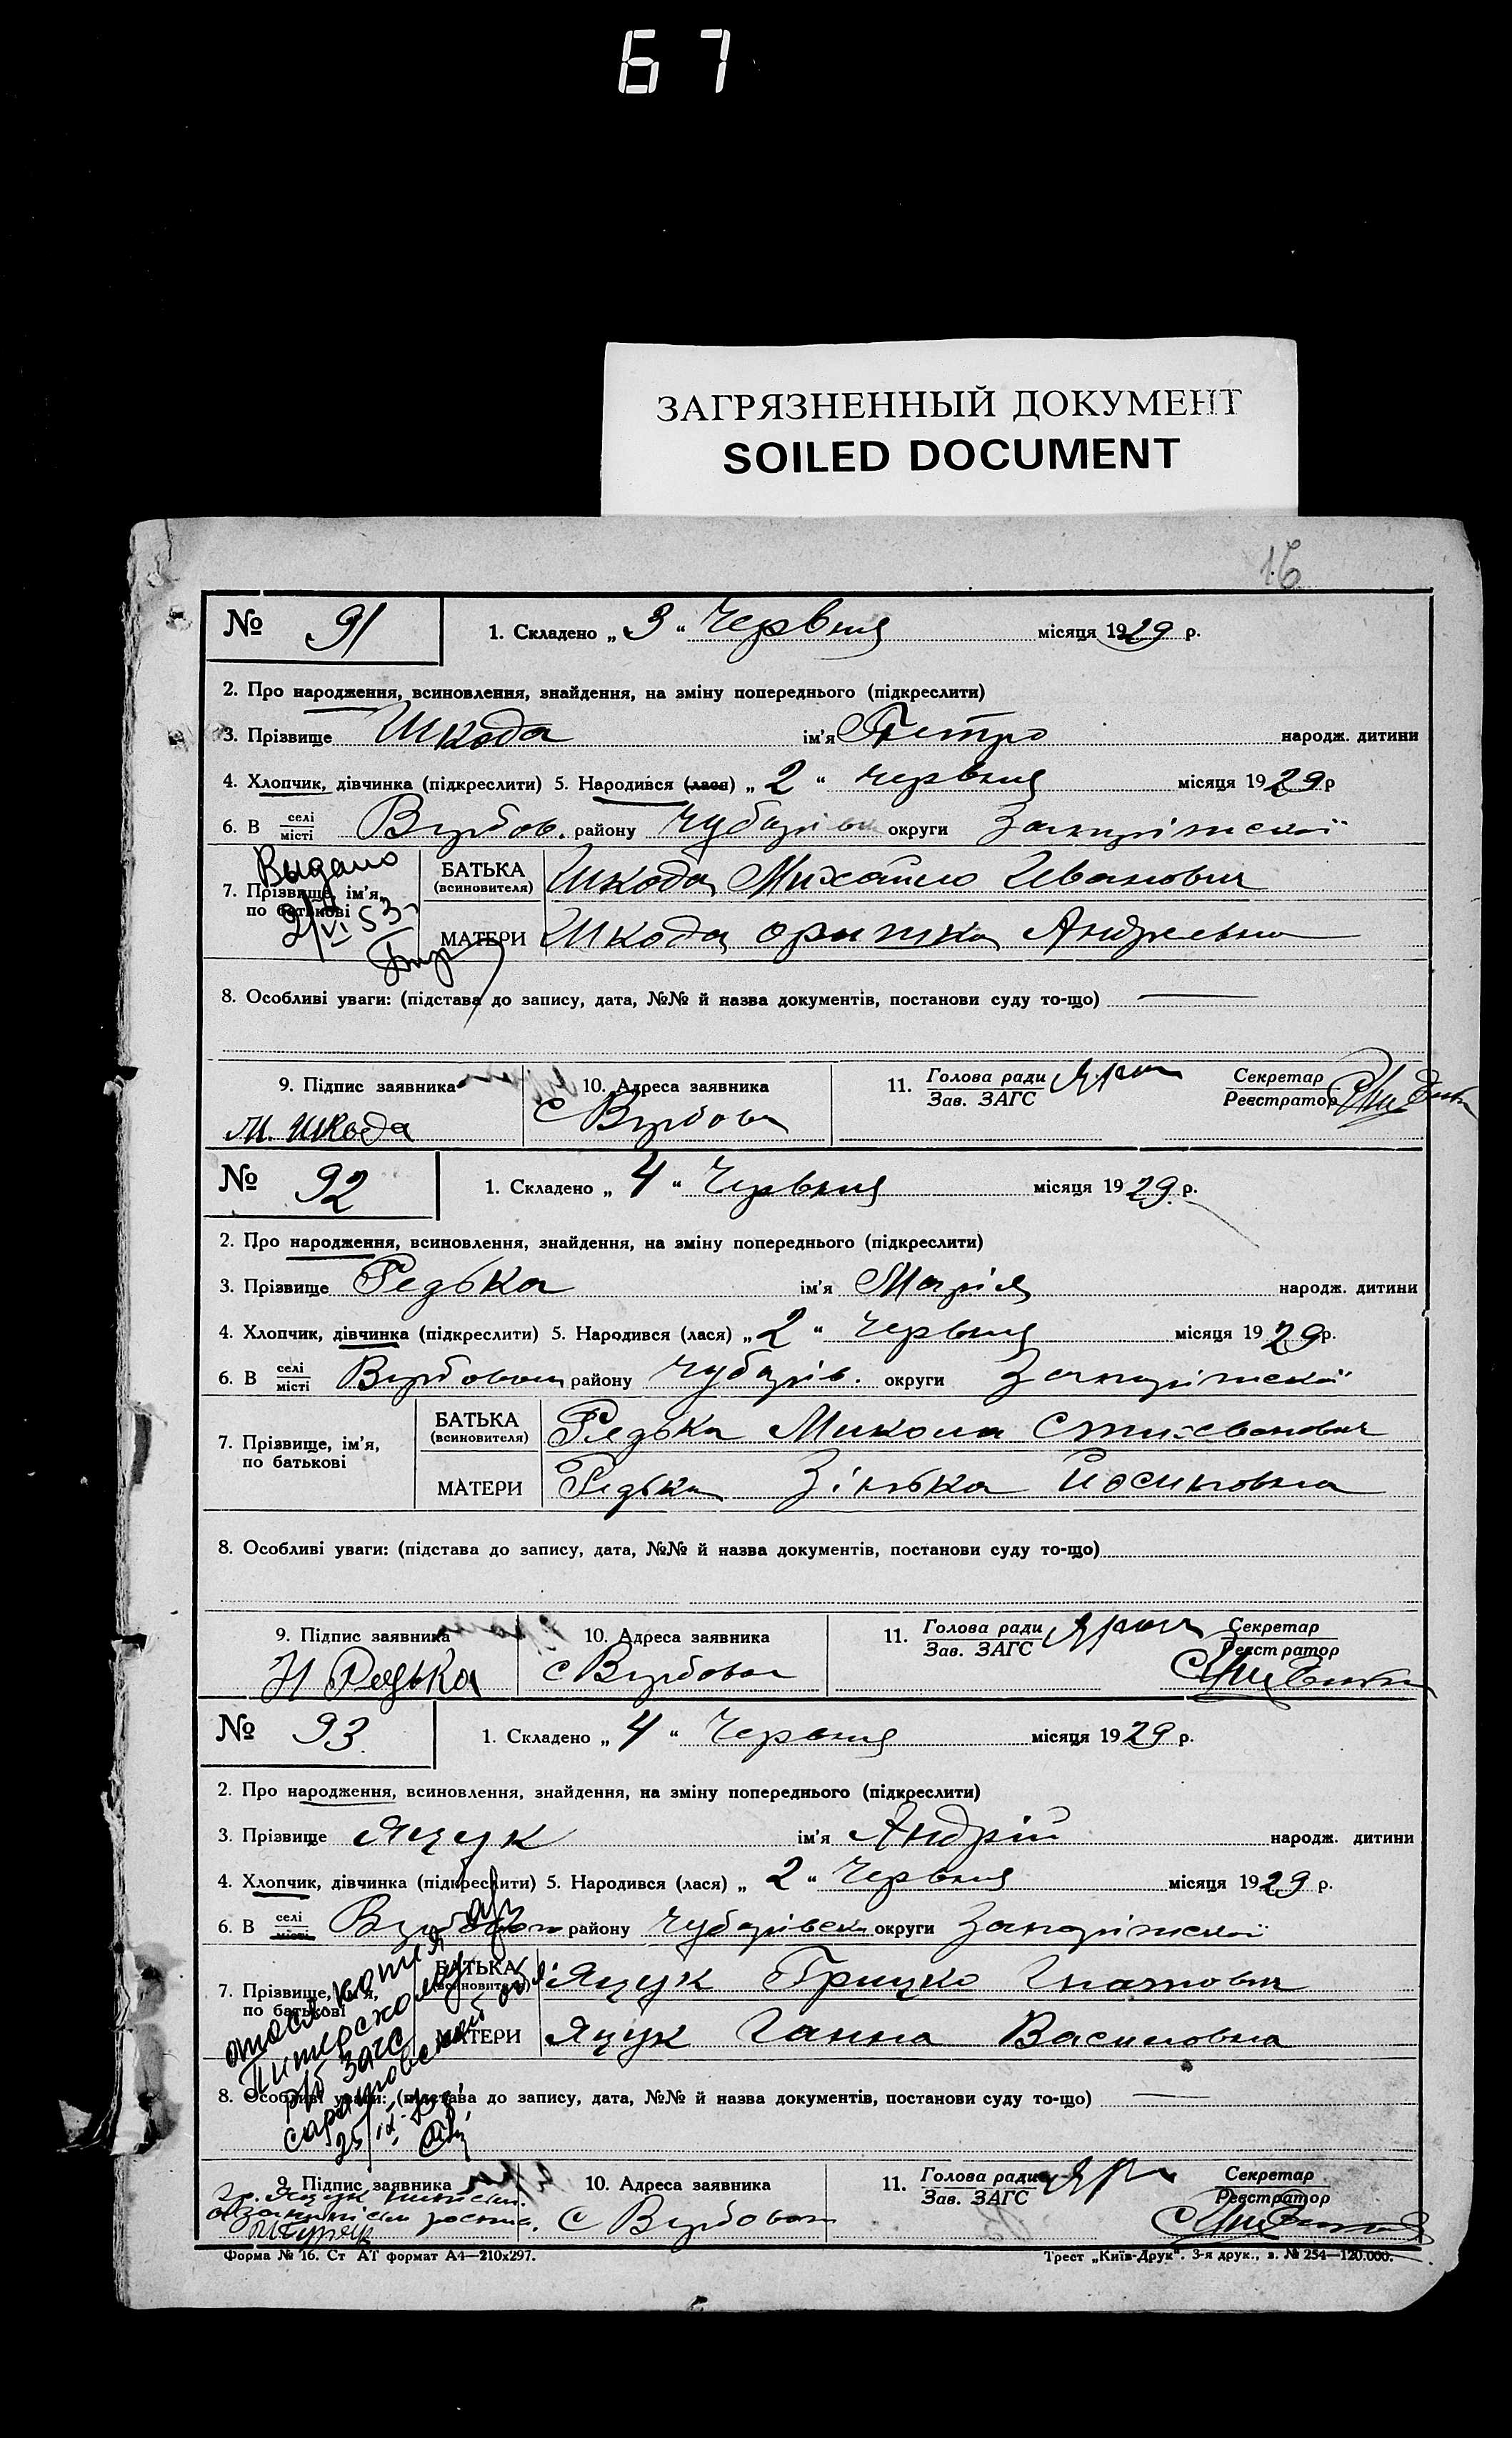 67
ЗАГРЯЗНЕННЫЙ ДОКУМЕНТ
SOILED DOCUMENT
16
№ 91 1. Складено „ 3 “ Червня місяця 1929 р.
2. Про народження, всиновлення, знайдення, на зміну попереднього (підкреслити)
3. Прізвище Шкода ім'я Петро народж. дитини
4. Хлопчик, дівчинка (підкреслити) 5. Народився (лася) „ 2 “ червня місяця 1929 р
6. В селі місті Вурбов. району Чубарівск округи Запоріжскої
Выдано
7. Прізвище, ім'я, по батькові БАТЬКА (всиновителя) Шкода Михайло Иванович
2/VI 53
МАТЕРИ Шкода Оришка Андреевна
8. Особливі уваги: (підстава до запису, дата, №№ й назва документів, постанови суду то-що)
9. Підпис заявника 10. Адреса заявника 11. Голова ради Зав. ЗАГС Секретар Реєстратор
М. Шкода с Вурбова
№ 92 1. Складено „ 4 “ Червня місяця 1929 р.
2. Про народження, всиновлення, знайдення, на зміну попереднього (підкреслити)
3. Прізвище Редька ім'я Марія народж. дитини
4. Хлопчик, дівчинка (підкреслити) 5. Народився (лася) „ 2 “ червня місяця 1929р.
6. В селі місті району Чубарів. округи Запоріжскої
7. Прізвище, ім'я, по батькові БАТЬКА (всиновителя) Редька Микола
МАТЕРИ Редька Зінька Йосиповна
8. Особливі уваги: (підстава до запису, дата, №№ й назва документів, постанови суду то-що)
9. Підпис заявника 10. Адреса заявника 11. Голова ради Зав. ЗАГС Секретар Реєстратор
Н Редька с Вурбова
№ 93 1. Складено „ 4 “ Червня місяця 1929 р.
2. Про народження, всиновлення, знайдення, на зміну попереднього (підкреслити)
3. Прізвище Яцук ім'я Андрій народж. дитини
4. Хлопчик, дівчинка (підкреслити) 5. Народився (лася) „ 2 “ Червня місяця 1929 р.
6. В селі місті району Чубарівск округи Запоріжскої
7. Прізвище, ім'я, по батькові БАТЬКА (всиновителя) Яцук Грицко Игнатович
МАТЕРИ Яцук Ганна Василовна
отосл. копия
Питерскому
р/б ЗАГС
саратовской обл.
8. Особливі уваги: (підстава до запису, дата, №№ й назва документів, постанови суду то-що)
9. Підпис заявника 10. Адреса заявника 11. Голова ради Зав. ЗАГС Секретар Реєстратор
с Вурбова
Форма № 16. Ст АТ формат А4—210x297. Трест „Київ-Друк“. 3-я друк., з. № 254—120.000.